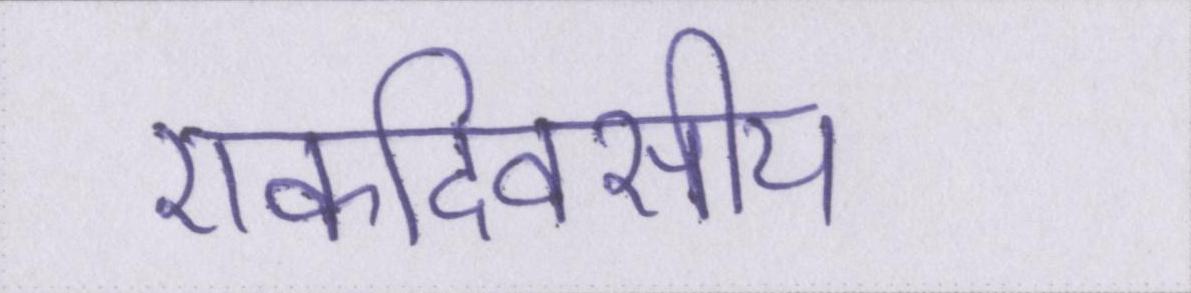 एकदिवसीय